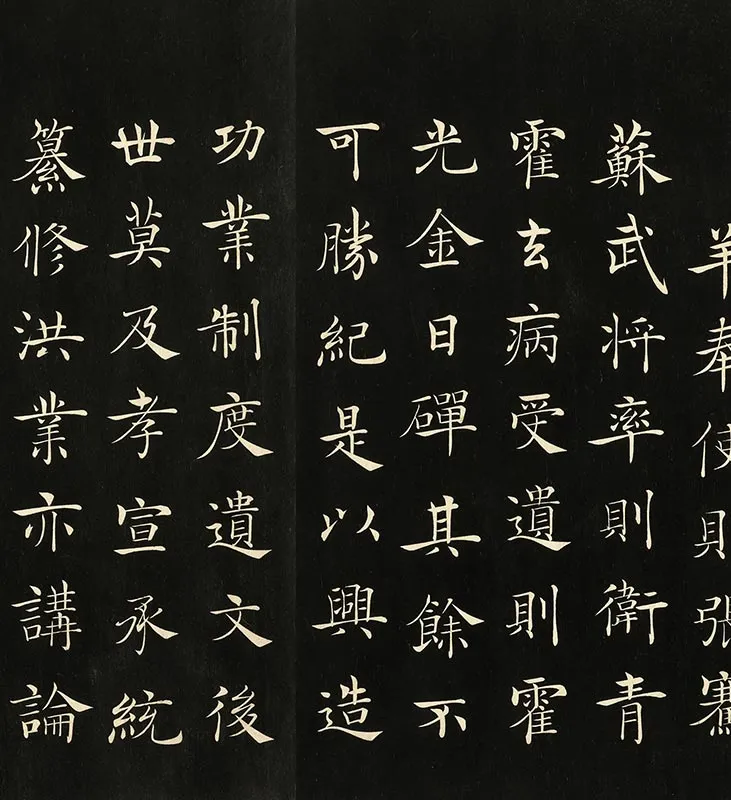 羊奉使則張騫
蘇武將率則衛青
霍去病受遺則霍
光金日磾其餘不
可勝紀是以興造
功業制度遺文後
世莫及孝宣承統
纂修洪業亦講論